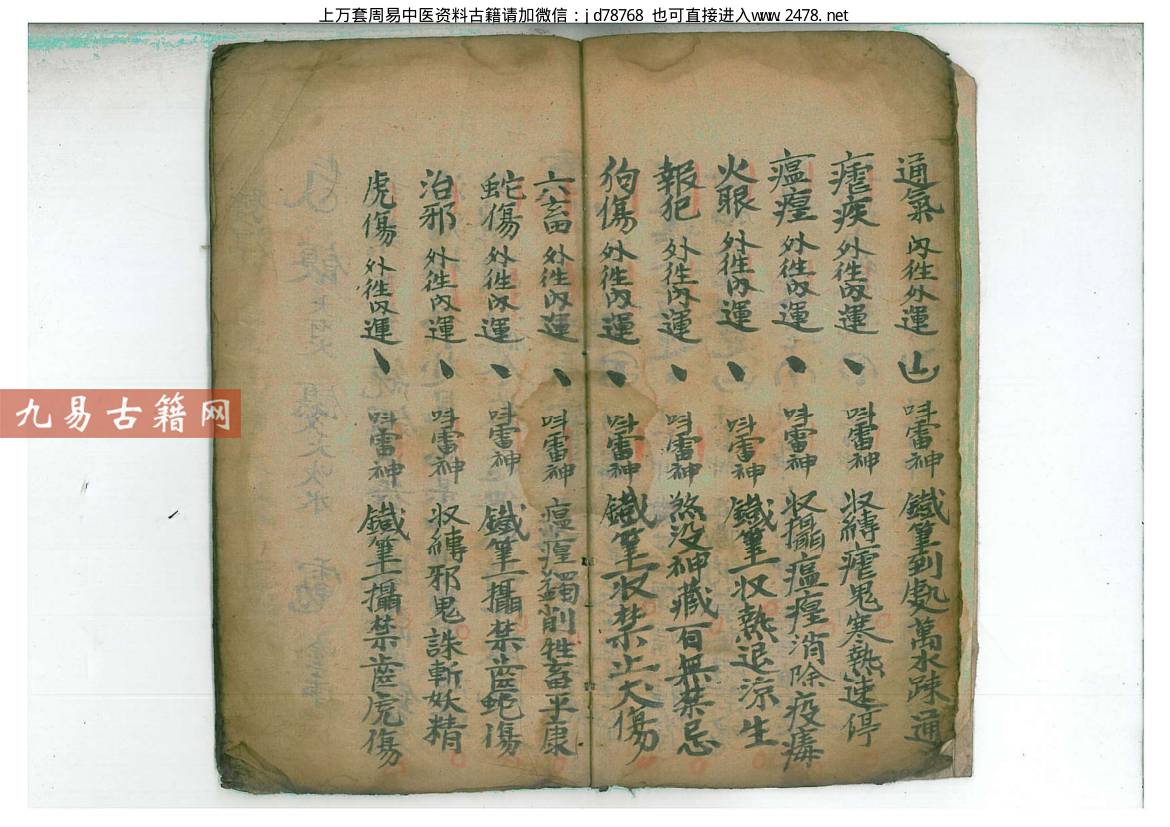 上万套周易中医资料古籍请加微信：jd78768 也可直接进入www.2478.net
通氣 內徃外運 山 呌雷神 鐵筆到處萬水疎通
瘧疾 外徃內運 呌雷神 収縛瘧鬼寒熱速停
瘟瘟 外徃內運 呌雷神 収攝瘟㾮消除疫毒
火眼 外徃內運 呌雷神 鐵筆一収熱退涼生
報犯 外徃內運 呌雷神 煞没神藏百無禁忌
狗傷 外徃內運 呌雷神 鐵筆一収禁止犬傷
六畜 外徃內運 呌雷神 瘟㾮蠲削牲畜平康
蛇傷 外徃內運 呌雷神 鐵筆一攝禁齒蛇傷
治邪 外徃內運 呌雷神 収縛邪鬼誅斬妖精
虎傷 外徃內運 呌雷神 鐵筆一攝禁齒虎傷
九易古籍网